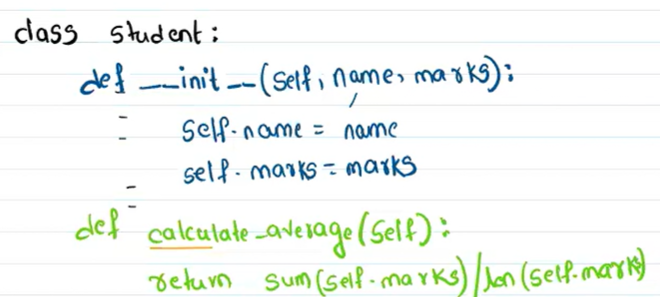 class student:
def __init__(self, name, marks):
self.name = name
self.marks = marks
def calculate_average(self):
return sum(self.marks)/len(self.marks)